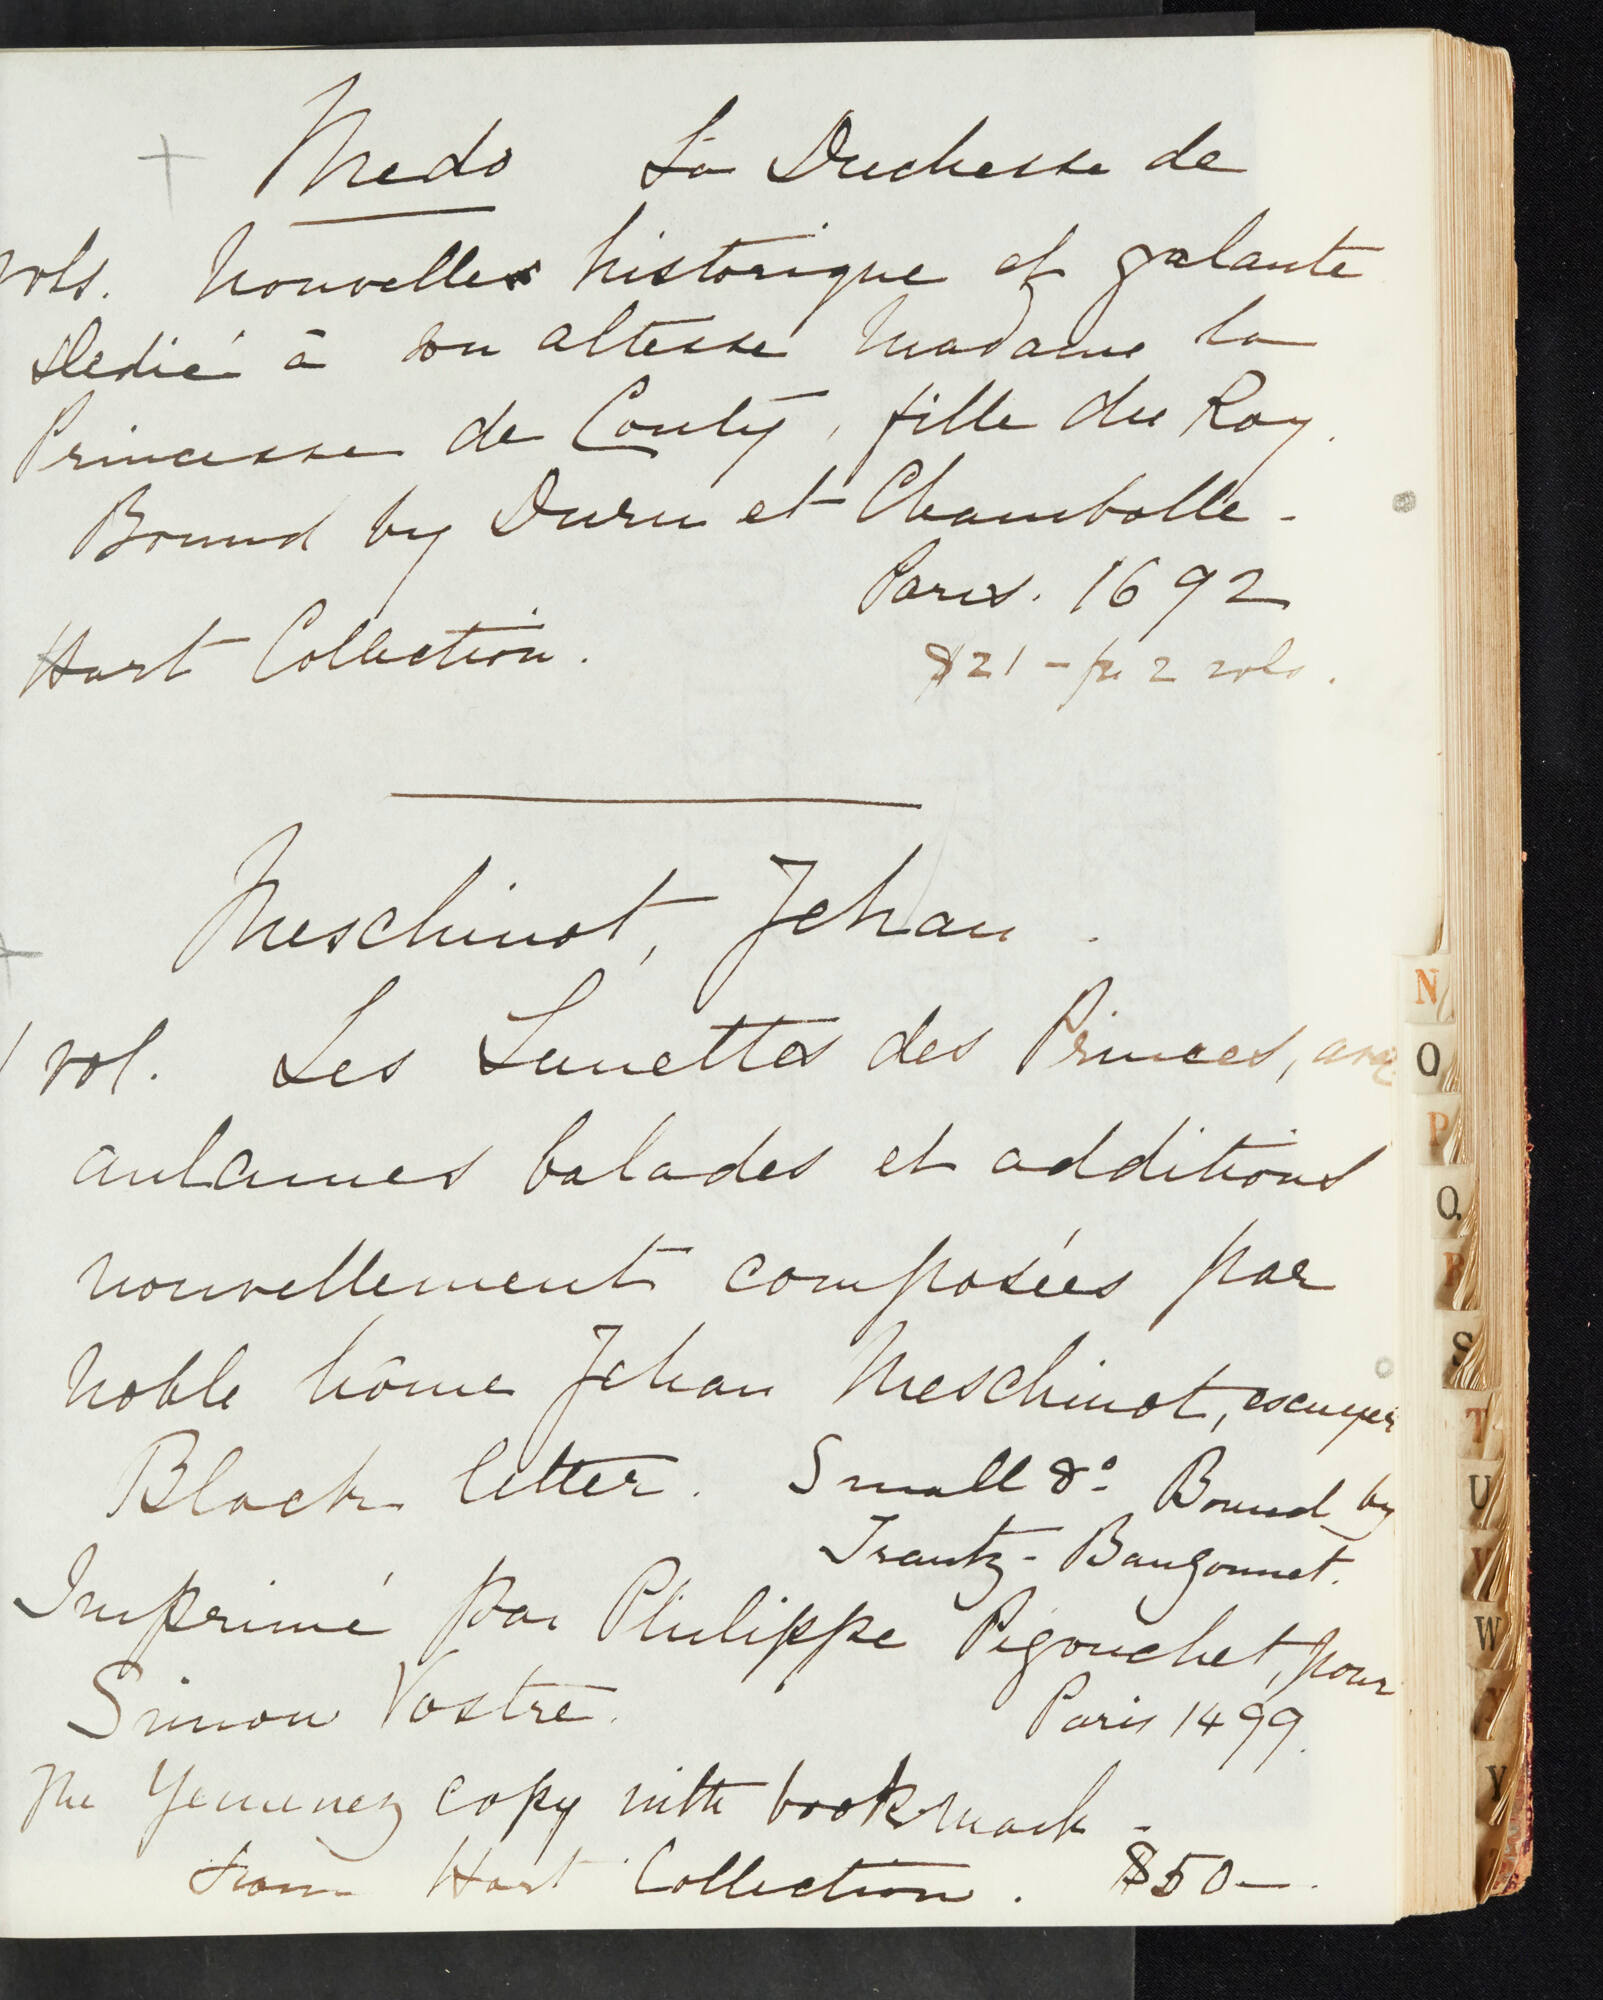 + Medo La Duchesse de
vols. Nouvelles historique et galante
Dedié à son altesse Madame la
Princesse de Conty, fille du Roy.
Bound by Duru et Chambolle -
Paris. 1692
Hart Collection.
$21 - pr 2 vols.
Meschinot, Jehan.
+
1 vol. Les Lunettes des Princes, avec
aulcunes balades et additions
nouvellement composées par
Noble hôme Jehan Meschinot, escuyer
Black letter. Small 8º Bound by
Trautz-Bauzonnet.
Imprimé par Philippe Pigouchet, pour
Simon Vostre.
Paris 1499.
The Yemeniz copy with bookmark -
from Hart Collection. $50-.
N
O
P
Q
R
S
T
U
V
W
X
Y